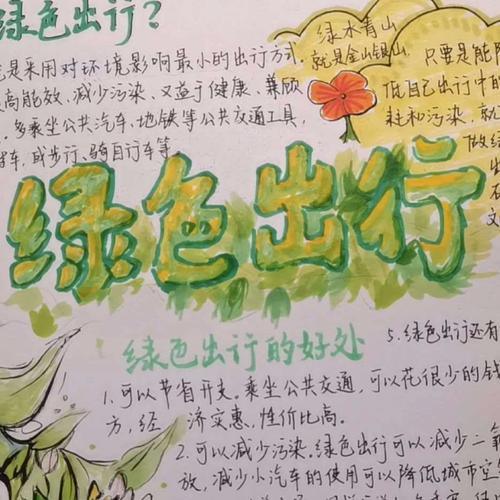 绿色出行?
是采用对环境影响最小的出行方式,
高能效、减少污染、又益于健康、兼顾
多乘坐公共汽车、地铁等公共交通工具,
车,或步行、骑自行车等
绿水青山
就是金山银山
只要是能
低自己出行中的
耗和污染,就
做绿
文
绿色出行
绿色出行的好处
1.可以节省开支。乘坐公共交通,可以花很少的钱
方,经 济实惠、性价比高。
2.可以减少污染.绿色出行可以减少二氧
放,减少小汽车的使用可以降低城市空
5.绿色出行还有